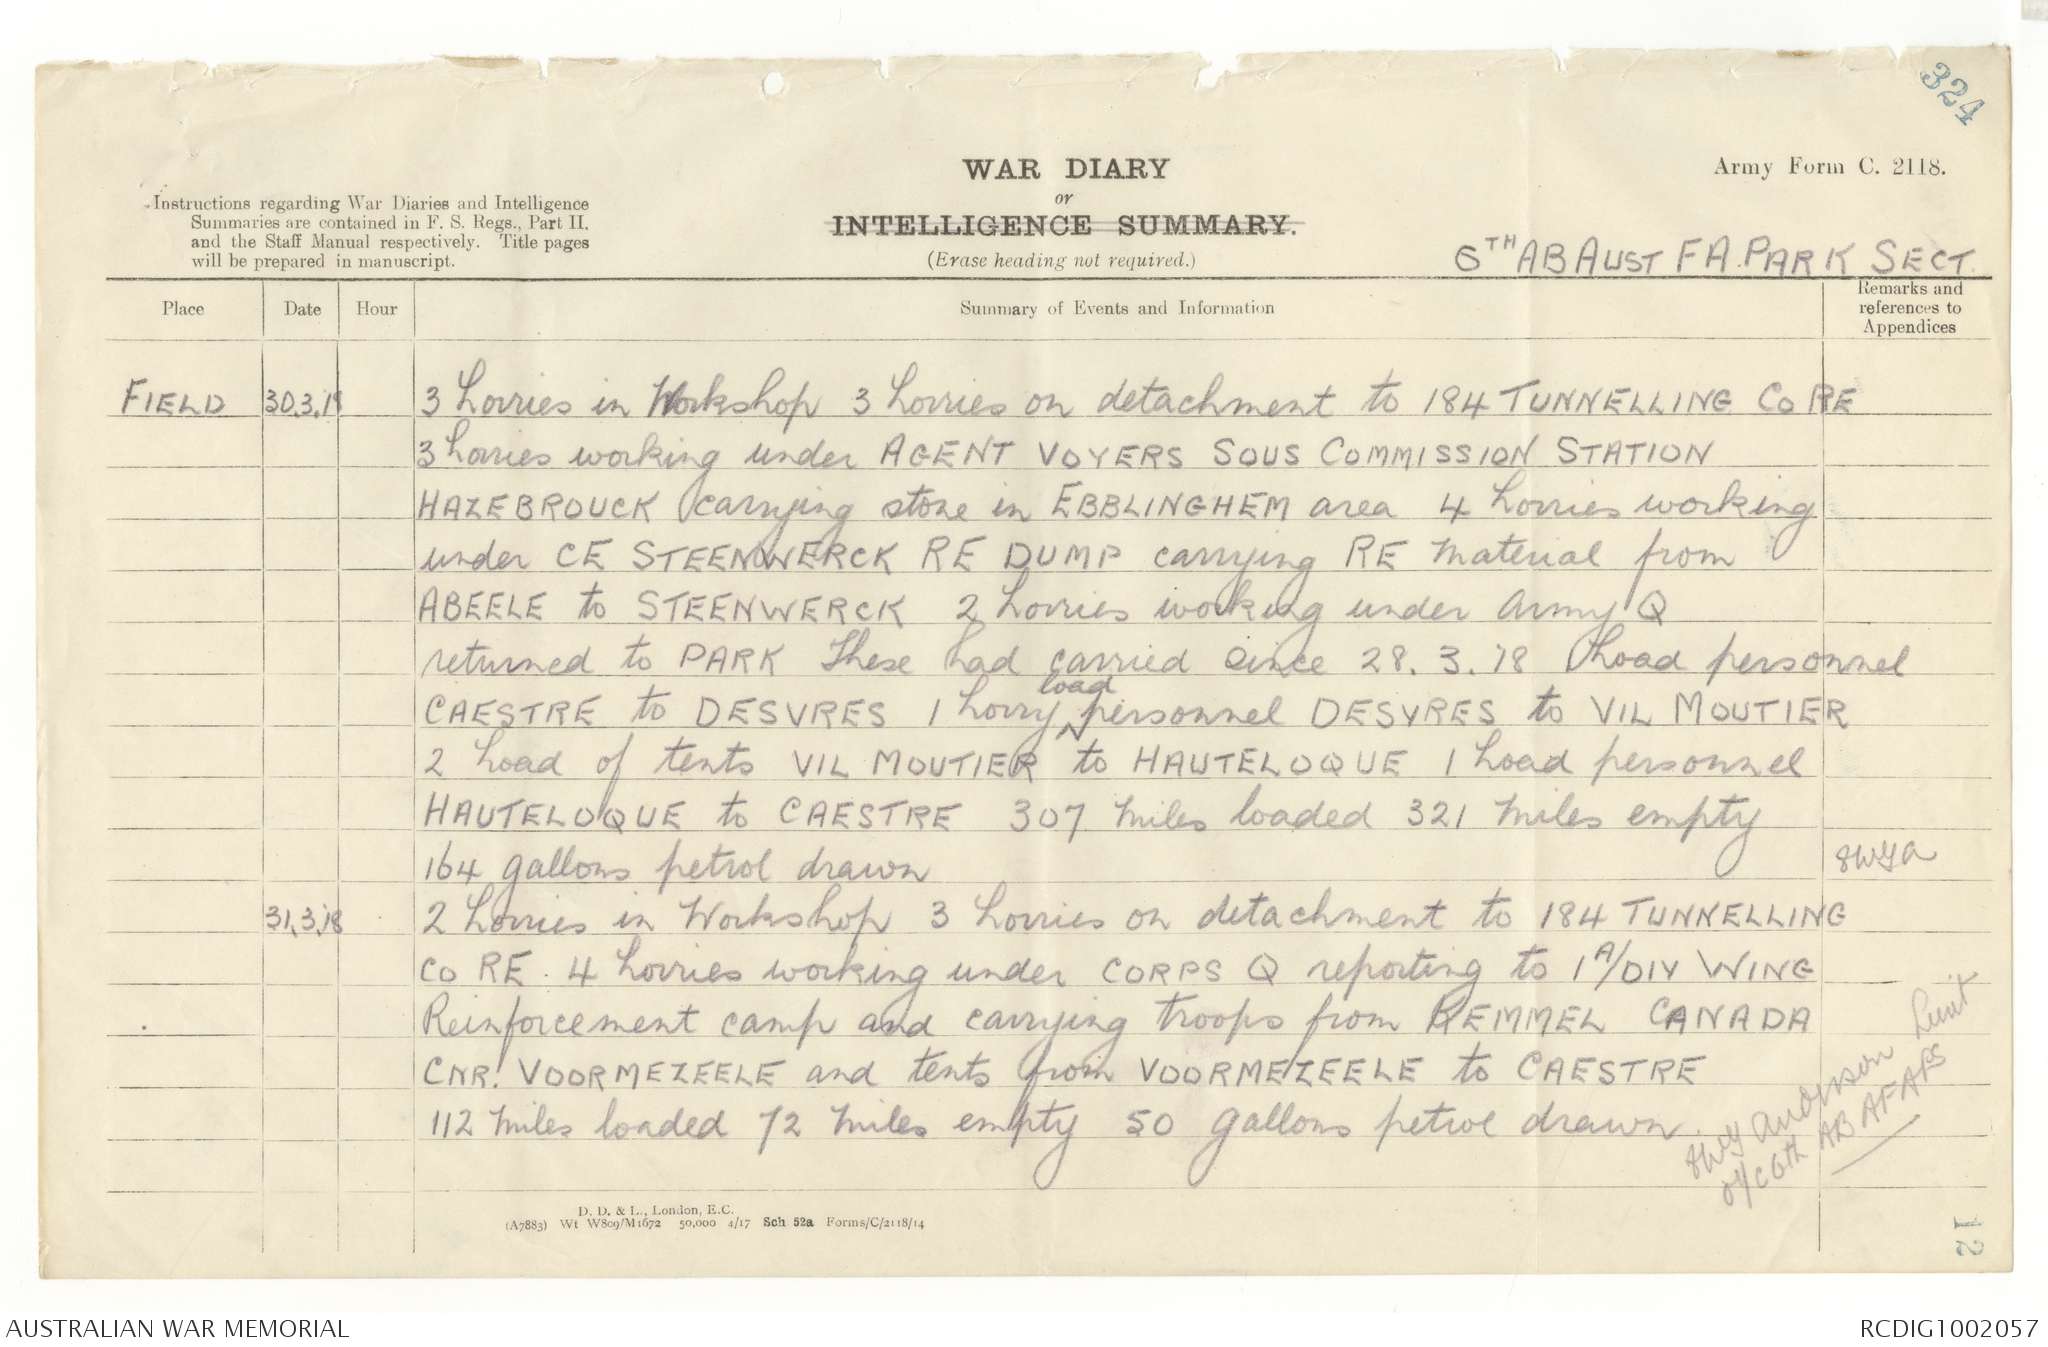 324
WAR DIARY
or
INTELLIGENCE SUMMARY.
(Erase heading not required.)
Army Form C. 2118.
Instructions regarding War Diaries and Intelligence
Summaries are contained in F. S. Regs., Part II.
and the Staff Manual respectively. Title pages
will be prepared in manuscript.
6TH AB AUST F A. PARK SECT.
Place Date Hour Summary of Events and Information Remarks and references to Appendices
FIELD 30.3.18 3 Lorries in Workshop 3 Lorries on detachment to 184 TUNNELLING Co RE
3 Lorries working under AGENT VOYERS SOUS COMMISSION STATION
HAZEBROUCK carrying stone in EBBLINGHEM area 4 Lorries working
under CE STEENWERCK RE DUMP carrying RE Material from
ABEELE to STEENWERCK 2 Lorries working under Army Q
returned to PARK These had carried since 28.3.18 1 Load personnel
CAESTRE to DESVRES 1 Lorry load personnel DESVRES to VIL MOUTIER
2 Load of tents VIL MOUTIER to HAUTELOQUE 1 Load personnel
HAUTELOQUE to CAESTRE 307 Miles loaded 321 Miles empty
164 gallons petrol drawn
31.3.18 2 Lorries in Workshop 3 Lorries on detachment to 184 TUNNELLING
Co RE. 4 Lorries working under CORPS Q reporting to 1 A/DIV WING
Reinforcement camp and carrying troops from KEMMEL CANADA
CNR. VOORMEZEELE and tents from VOORMEZEELE to CAESTRE
112 Miles loaded 72 Miles empty 50 gallons petrol drawn.
Anderson Lieut
O/C 6th AB AFAPS
D. D. & L., London, E.C.
(A7883) Wt W809/M1672 50,000 4/17 Sch 52a Forms/C/2118/14
12
AUSTRALIAN WAR MEMORIAL
RCDIG1002057